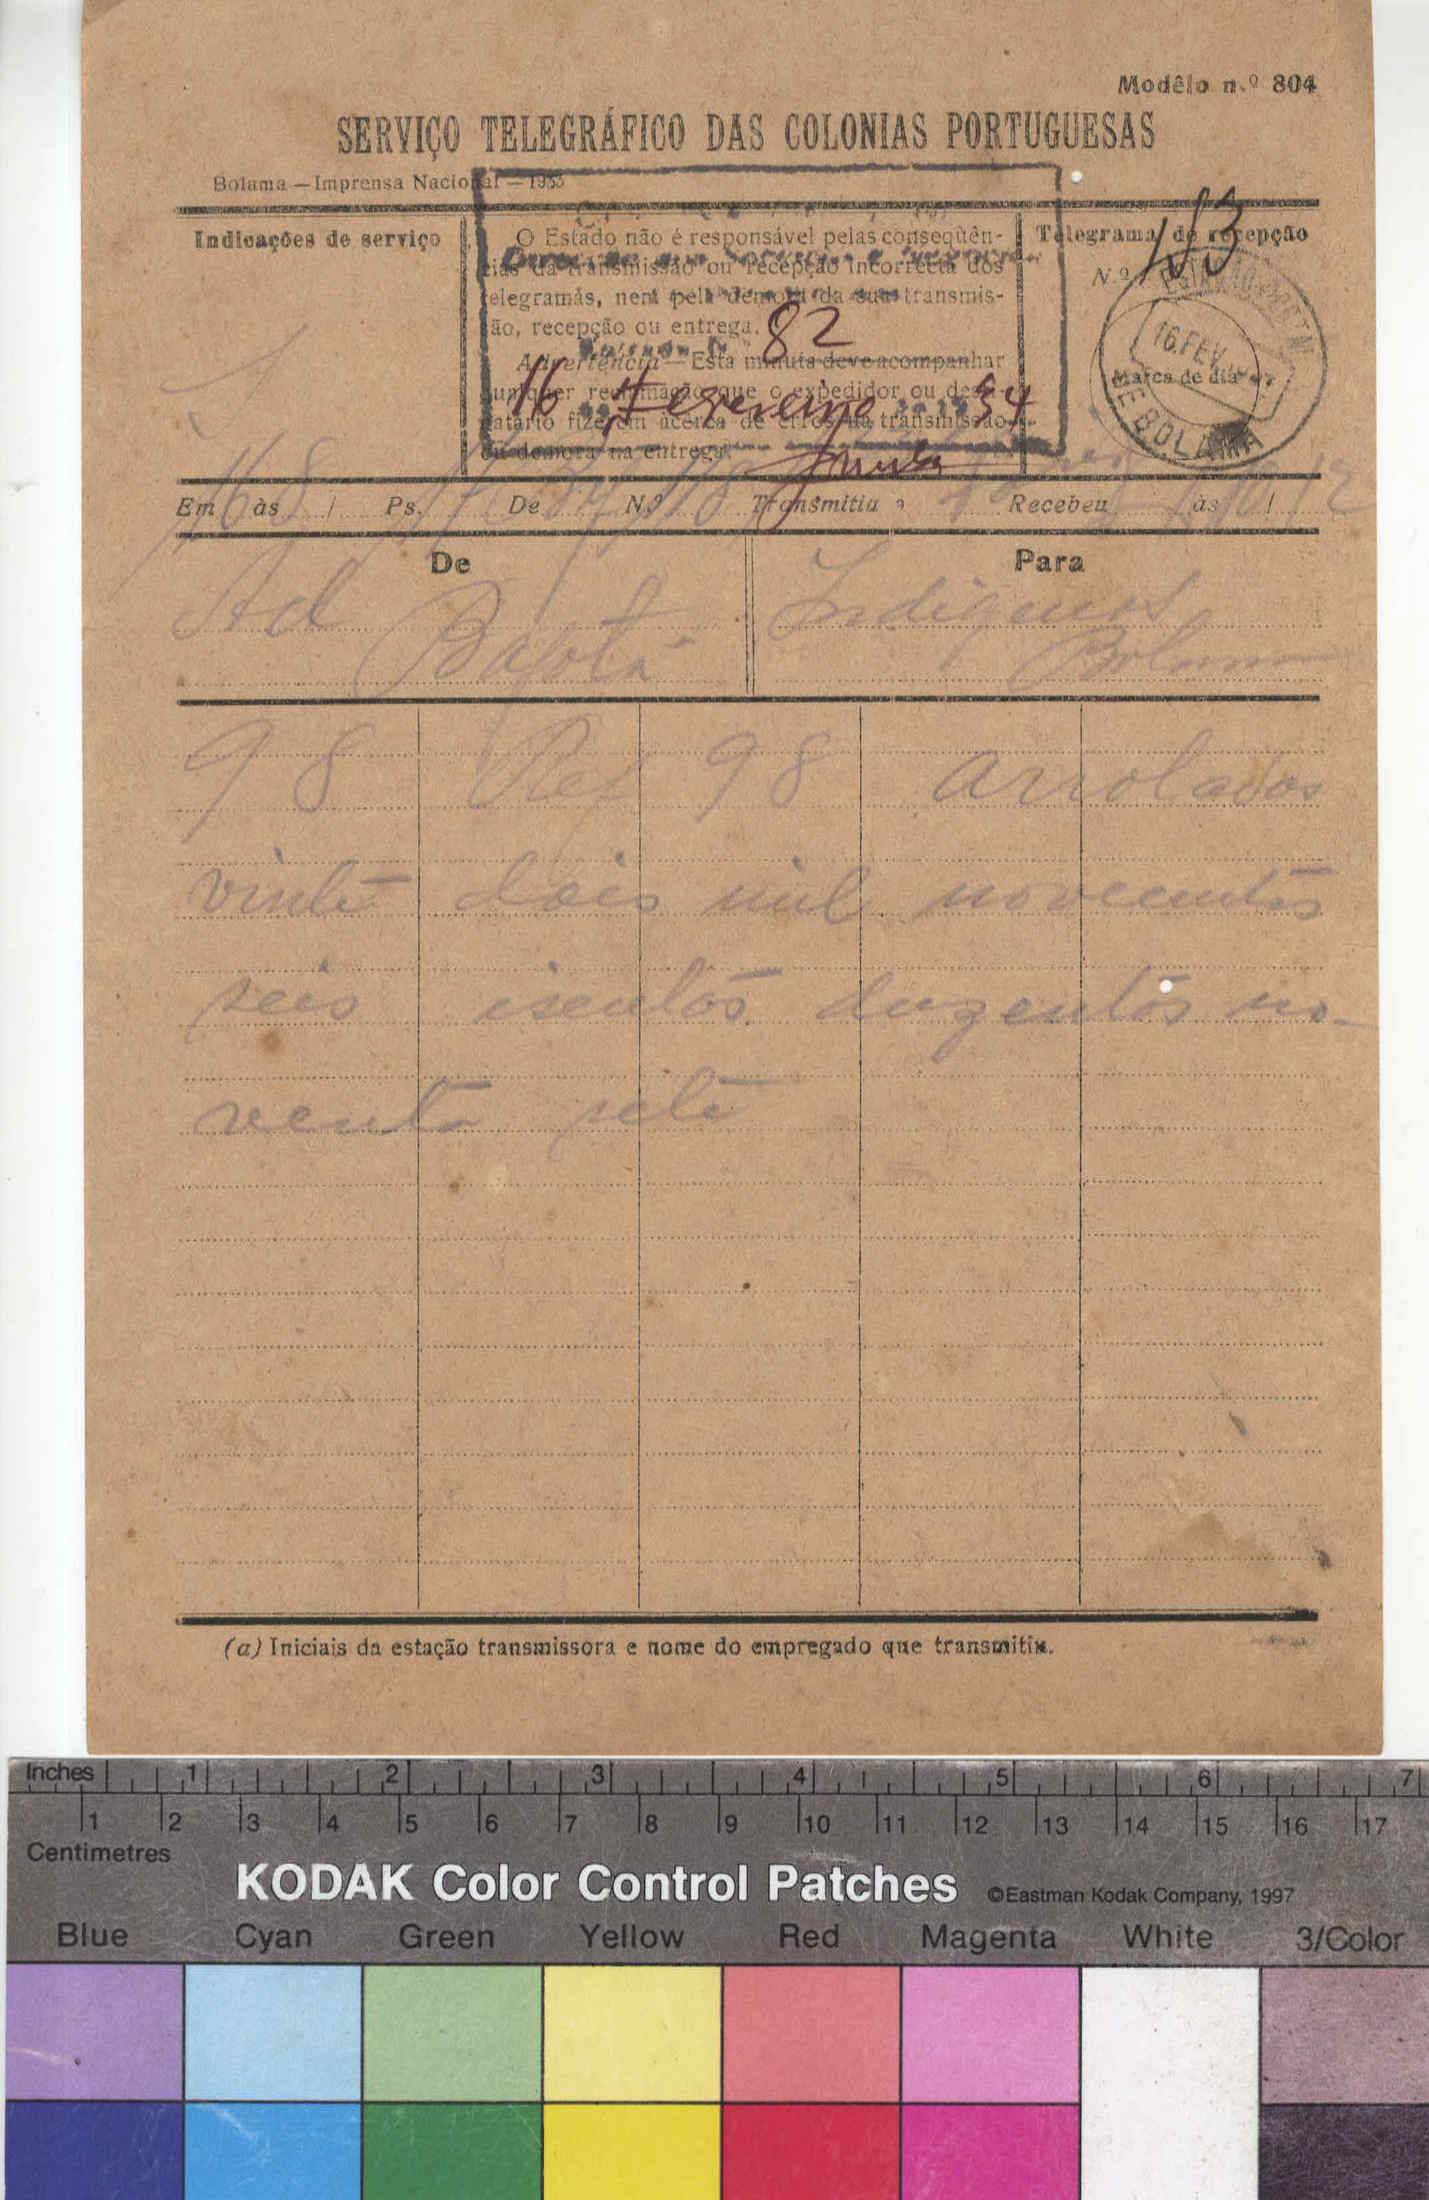 Modêlo n.º 804
SERVIÇO TELEGRÁFICO DAS COLONIAS PORTUGUESAS
Bolama — Imprensa Nacional — 1933
Indicações de serviço
O Estado não é responsável pelas conseqùên-
cias da transmissão ou recepção incorrecta dos
telegramas, nem pela demora da sua transmis-
são, recepção ou entrega.
Advertência — Esta minuta deve acompanhar
qualquer reclamação que o expedidor ou desti-
natário fizerem acêrca de erros da transmissão
ou demora na entrega.
82
16 Fevereiro 34
Telegrama de recepção
N.º 153
16.FEV
Marca de dia
DE BOLAMA
Em às / Ps. De N.º Transmitiu Recebeu às /
De
Para
Ad
Indigenas
Bafatá
Bolama
98 Ref 98 arrolados
vinte dois mil novecentos
seis isentos duzentos no-
venta sete
(a) Iniciais da estação transmissora e nome do empregado que transmitiu.
Inches 1 2 3 4 5 6 7
1 2 3 4 5 6 7 8 9 10 11 12 13 14 15 16 17
Centimetres
KODAK Color Control Patches ©Eastman Kodak Company, 1997
Blue Cyan Green Yellow Red Magenta White 3/Color